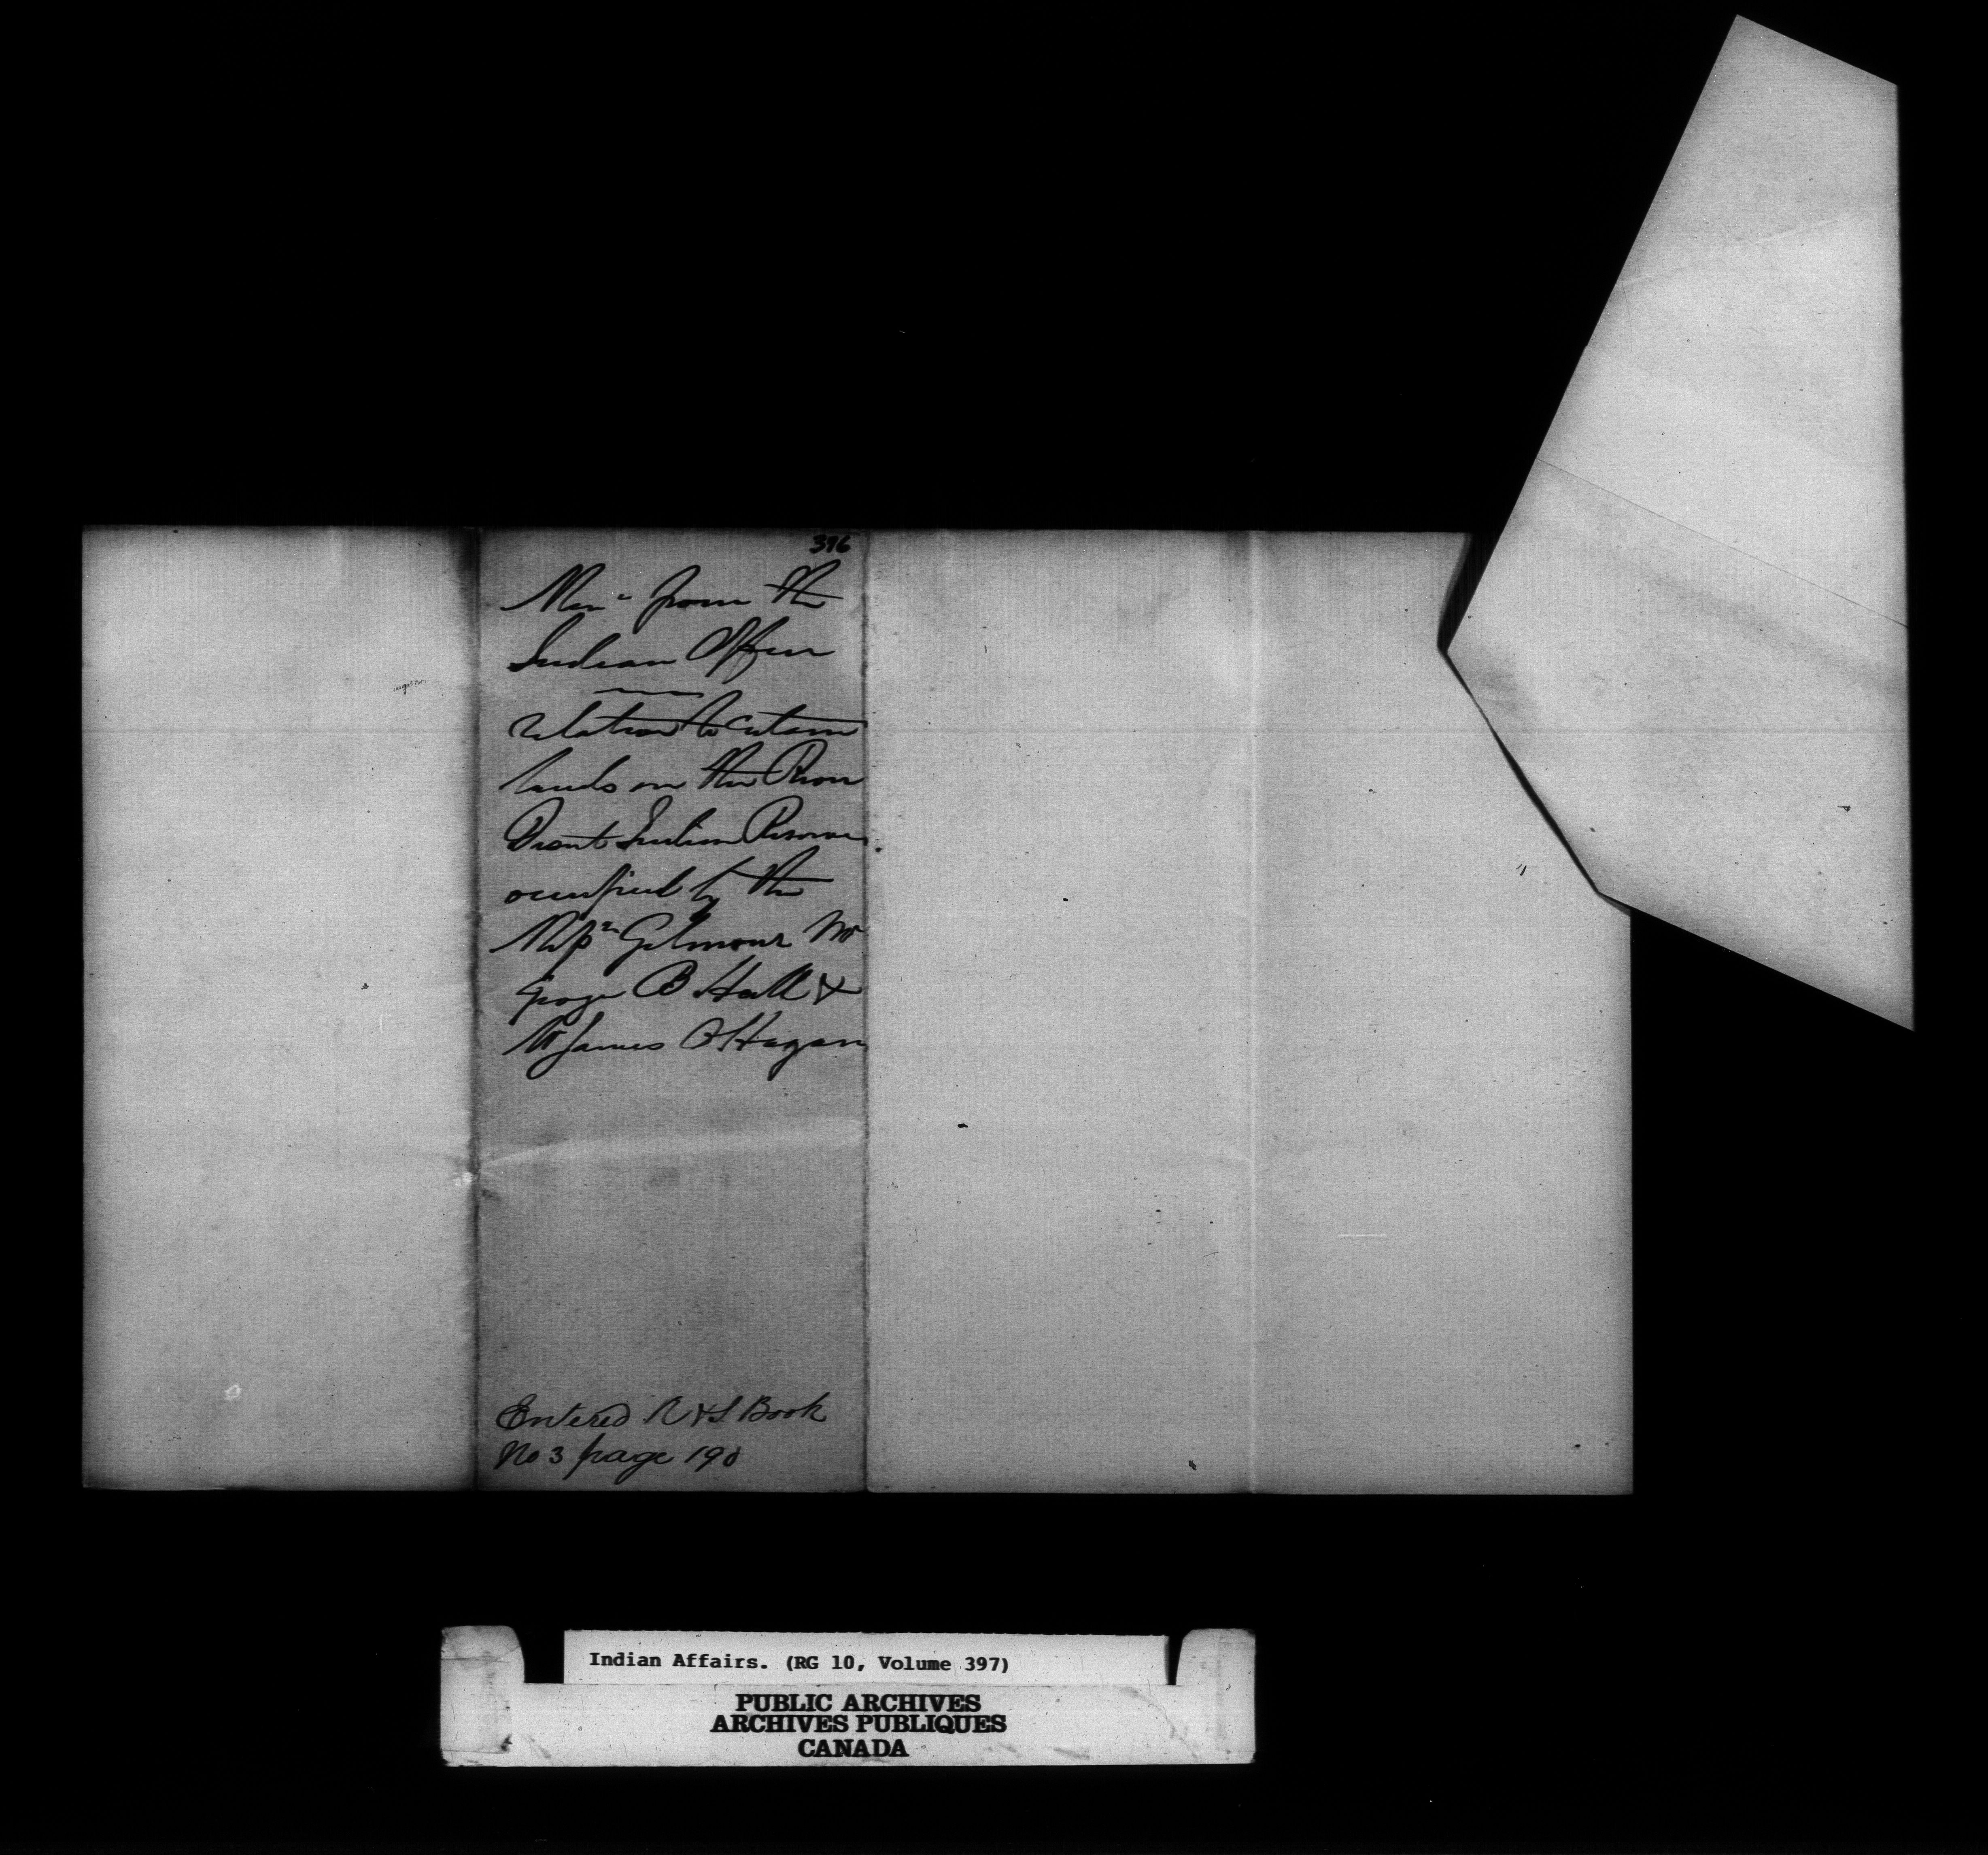 396
Mem. from the
Indian Office
relation to certain
lands on the River
Desert Indian Reserve
occupied by the
Messrs Gilmour Mr
George B Hall &
Mr James O'Hagan
Entered R & S. Book
No 3 page 190
Indian Affairs. (RG 10, Volume 397)
PUBLIC ARCHIVES
ARCHIVES PUBLIQUES
CANADA